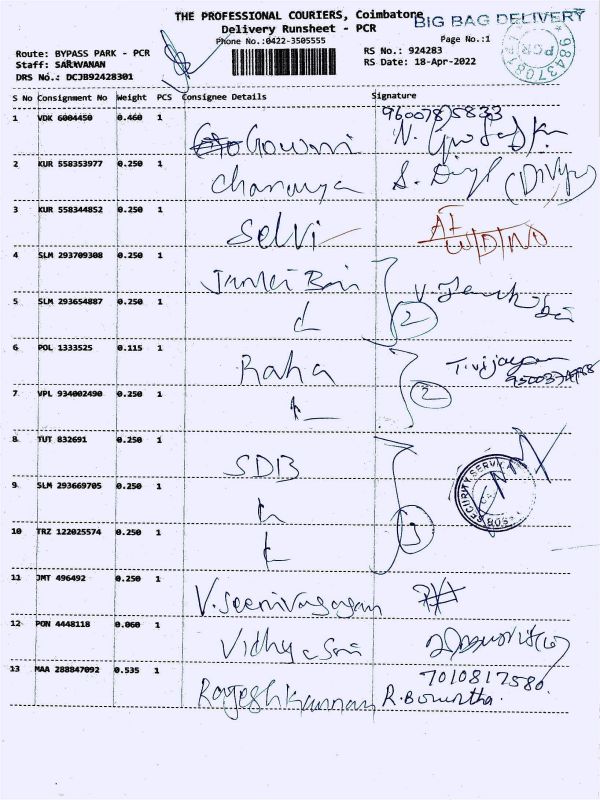 THE PROFESSIONAL COURIERS, Coimbatone
BIG BAG DELIVERY
Delivery Runsheet - PCR
Phone No.:0422-3505555
Page No.:1
Route: BYPASS PARK - PCR
RS No.: 924283
Staff: SARAVANAN
RS Date: 18-Apr-2022
DRS No.: DCJB92428301
PCR
S No Consignment No Weight PCS Consignee Details Signature
9600785833
1 VDK 6004450 0.460 1 Gowri
2 KUR 558353977 0.250 1 S. (Divya)
3 KUR 558344852 0.250 1 Selvi
4 SLM 293709308 0.250 1
5 SLM 293654887 0.250 1 2
6 POL 1333525 0.115 1 Raha T.vijayan
7 VPL 934002490 0.250 1 2
8 TUT 832691 0.250 1 SDB
SECURITY SERVICE
9 SLM 293669705 0.250 1
10 TRZ 122025574 0.250 1 3
11 JMT 496492 0.250 1 V.Seenivasagan
12 PON 4448118 0.060 1 Vidhya Sri
7010817580
13 MAA 288847092 0.535 1 Rajeshkannan R.